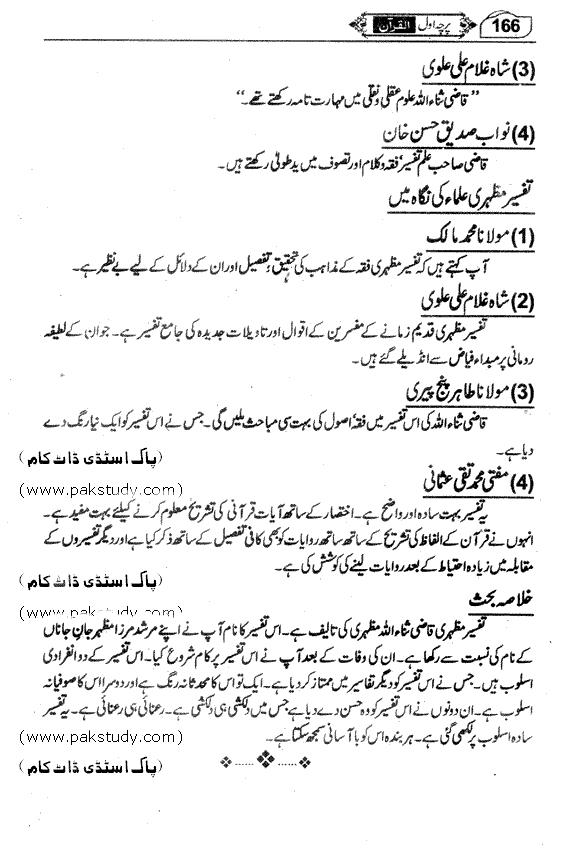 166 پرچہ اول القرآن
(3) شاہ غلام علی علوی
"قاضی ثناء اللہ علوم عقلی و نقلی میں مہارت تامہ رکھتے تھے۔"
(4) نواب صدیق حسن خان
قاضی صاحب علم تفسیر، فقہ و کلام اور تصوف میں ید طولیٰ رکھتے ہیں۔
تفسیر مظہری علماء کی نگاہ میں
(1) مولانا محمد مالک
آپ کہتے ہیں کہ تفسیر مظہری فقہ کے مذاہب کی تحقیق و تفصیل اور ان کے دلائل کے لیے بے نظیر ہے۔
(2) شاہ غلام علی علوی
تفسیر مظہری قدیم زمانے کے مفسرین کے اقوال اور تاویلات جدیدہ کی جامع تفسیر ہے۔ جو ان کے لطیفہ
رومانی پر مبداء فیاض سے انڈیلے گئے ہیں۔
(3) مولانا طاہر پنج پیری
قاضی ثناء اللہ کی اس تفسیر میں فقہ، اصول کی بہت سی مباحث ملیں گی۔ جس نے اس تفسیر کو ایک نیا رنگ دے
دیا ہے۔
(پاک اسٹڈی ڈاٹ کام)
(4) مفتی محمد تقی عثمانی
(www.pakstudy.com)
یہ تفسیر بہت سادہ اور واضح ہے۔ اختصار کے ساتھ آیات قرآنی کی تشریح معلوم کرنے کیلئے بہت مفید ہے۔
انہوں نے قرآن کے الفاظ کی تشریح کے ساتھ ساتھ روایات کو بھی کافی تفصیل کے ساتھ ذکر کیا ہے اور دیگر تفسیروں کے
مقابلہ میں زیادہ احتیاط کے بعد روایات لینے کی کوشش کی ہے۔
(پاک اسٹڈی ڈاٹ کام)
خلاصہ بحث
(www.pakstudy.com)
تفسیر مظہری قاضی ثناء اللہ مظہری کی تالیف ہے۔ اس تفسیر کا نام آپ نے اپنے مرشد مرزا مظہر جان جاناں
کے نام کی نسبت سے رکھا ہے۔ ان کی وفات کے بعد آپ نے اس تفسیر پر کام شروع کیا۔ اس تفسیر کے دو انفرادی
اسلوب ہیں۔ جس نے اس تفسیر کو دیگر تفاسیر میں ممتاز کر دیا ہے۔ ایک تو اس کا محدثانہ رنگ ہے اور دوسرا اس کا صوفیانہ
اسلوب ہے۔ ان دونوں نے اس تفسیر کو وہ حسن دے دیا ہے جس میں دلکشی ہی دلکشی ہے۔ رعنائی ہی رعنائی ہے۔ یہ تفسیر
سادہ اسلوب پر لکھی گئی ہے۔ ہر بندہ اس کو با آسانی سمجھ سکتا ہے۔
(www.pakstudy.com)
(پاک اسٹڈی ڈاٹ کام)